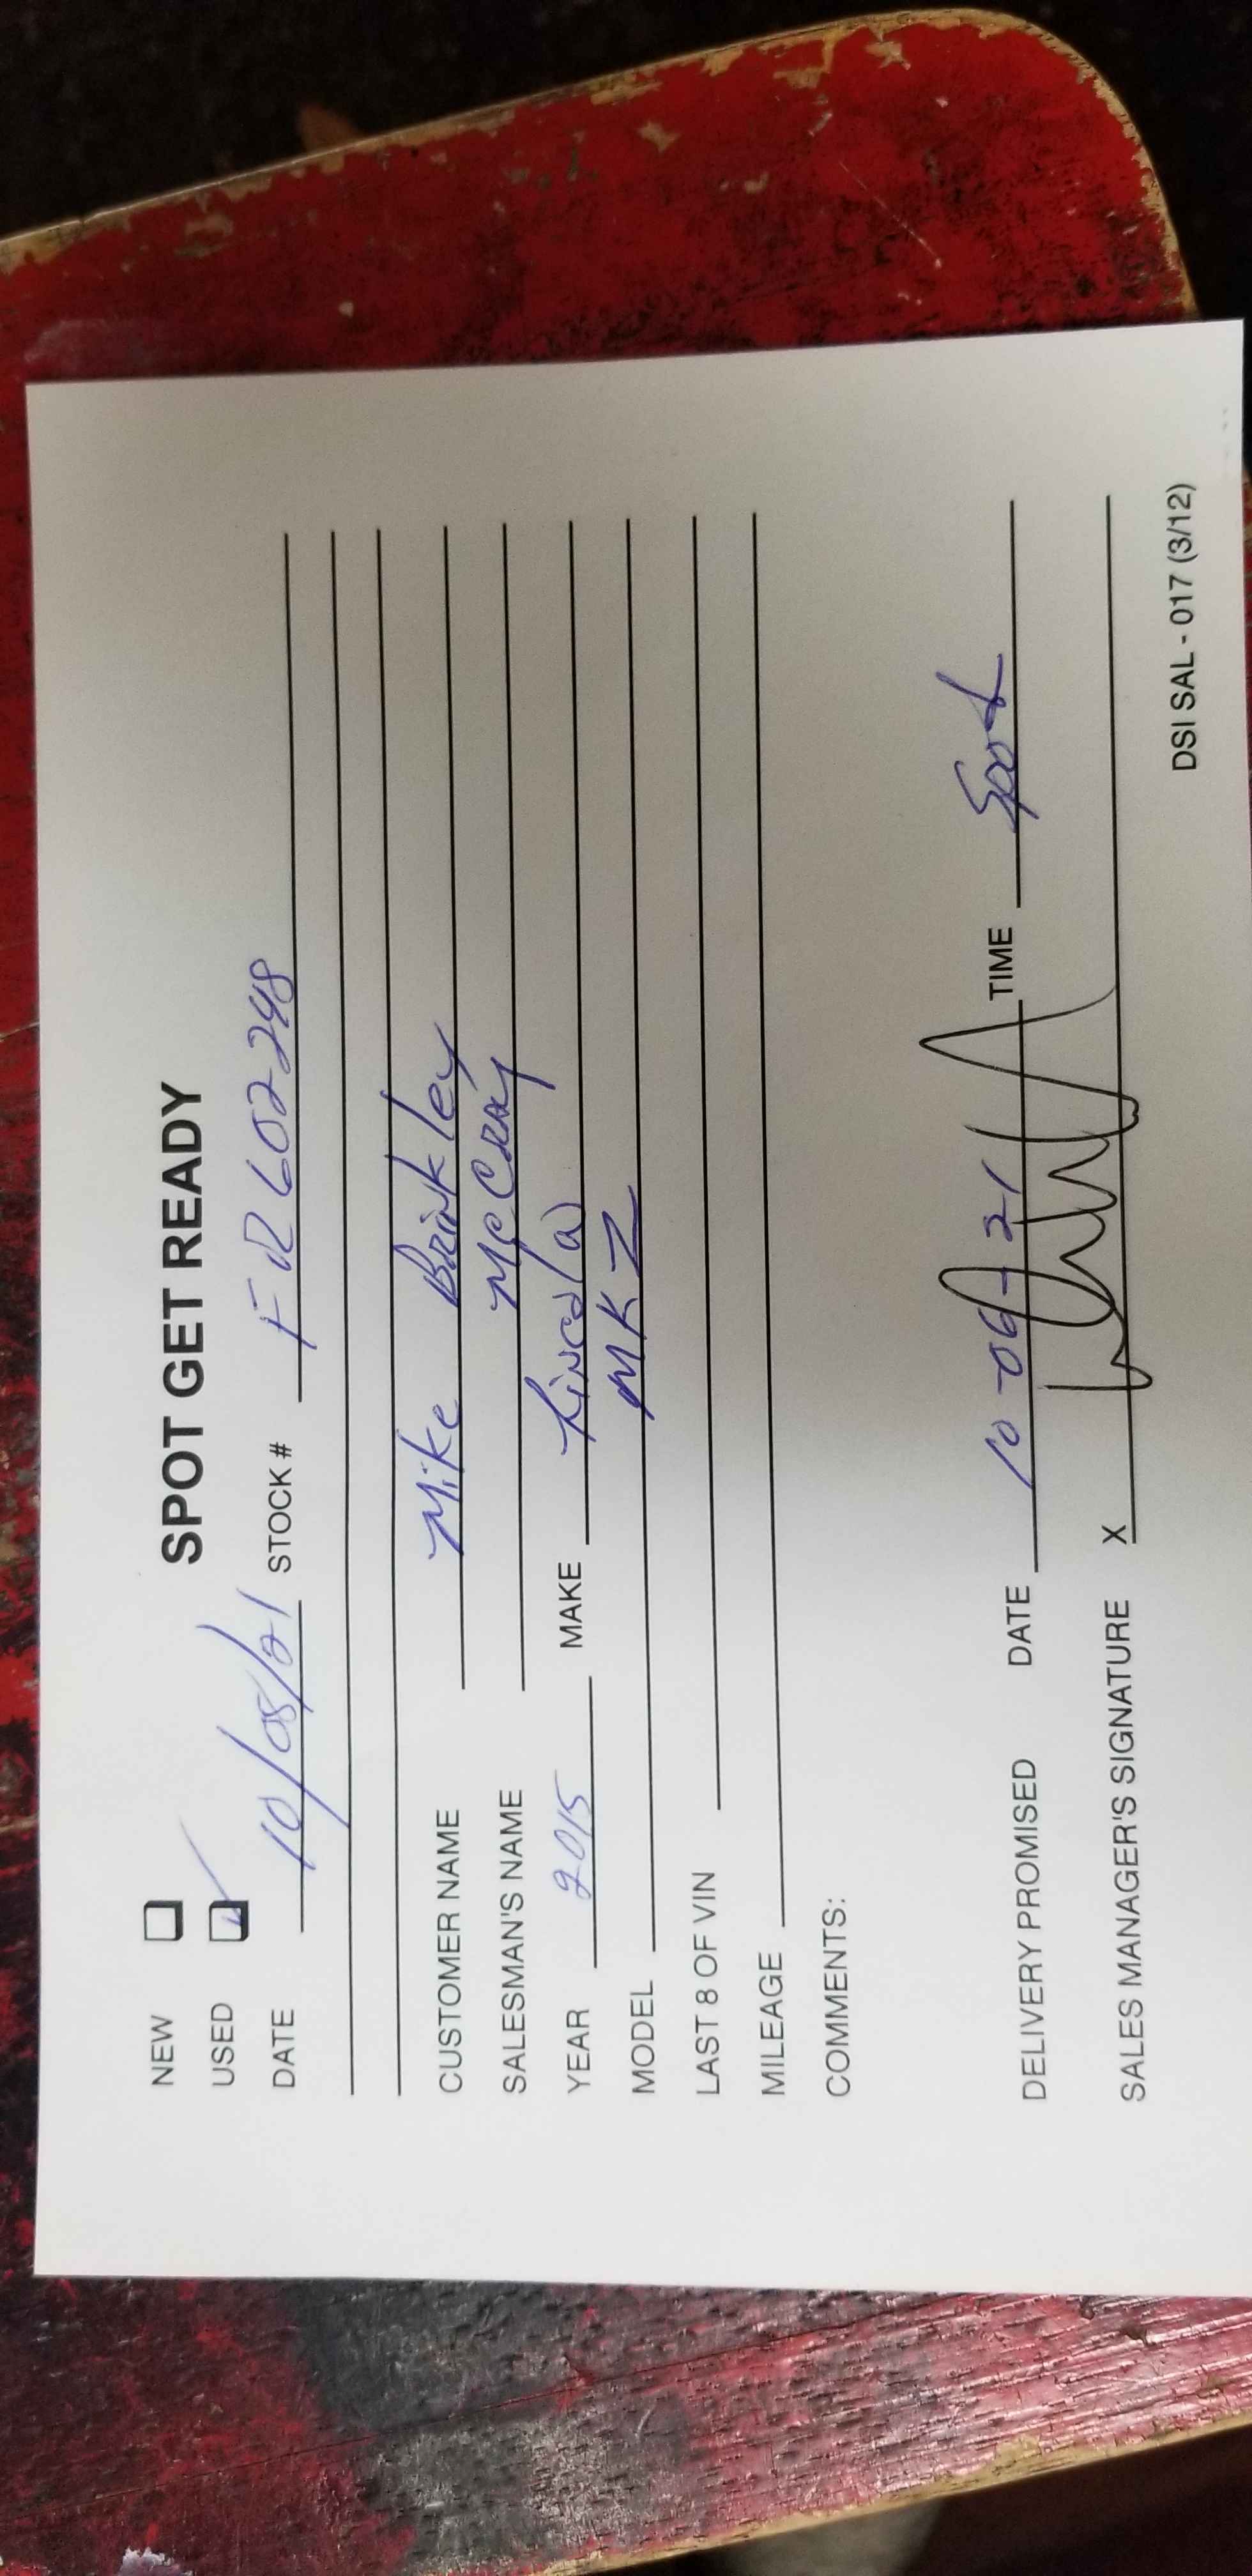 SPOT GET READY
NEW
USED
DATE 10/08/21 STOCK # FR602248
CUSTOMER NAME Mike Brinkley
SALESMAN'S NAME McCray
YEAR 2015 MAKE Lincoln
MODEL MKZ
LAST 8 OF VIN
MILEAGE
COMMENTS:
DELIVERY PROMISED DATE 10-06-21 TIME Spot
SALES MANAGER'S SIGNATURE X
DSI SAL - 017 (3/12)